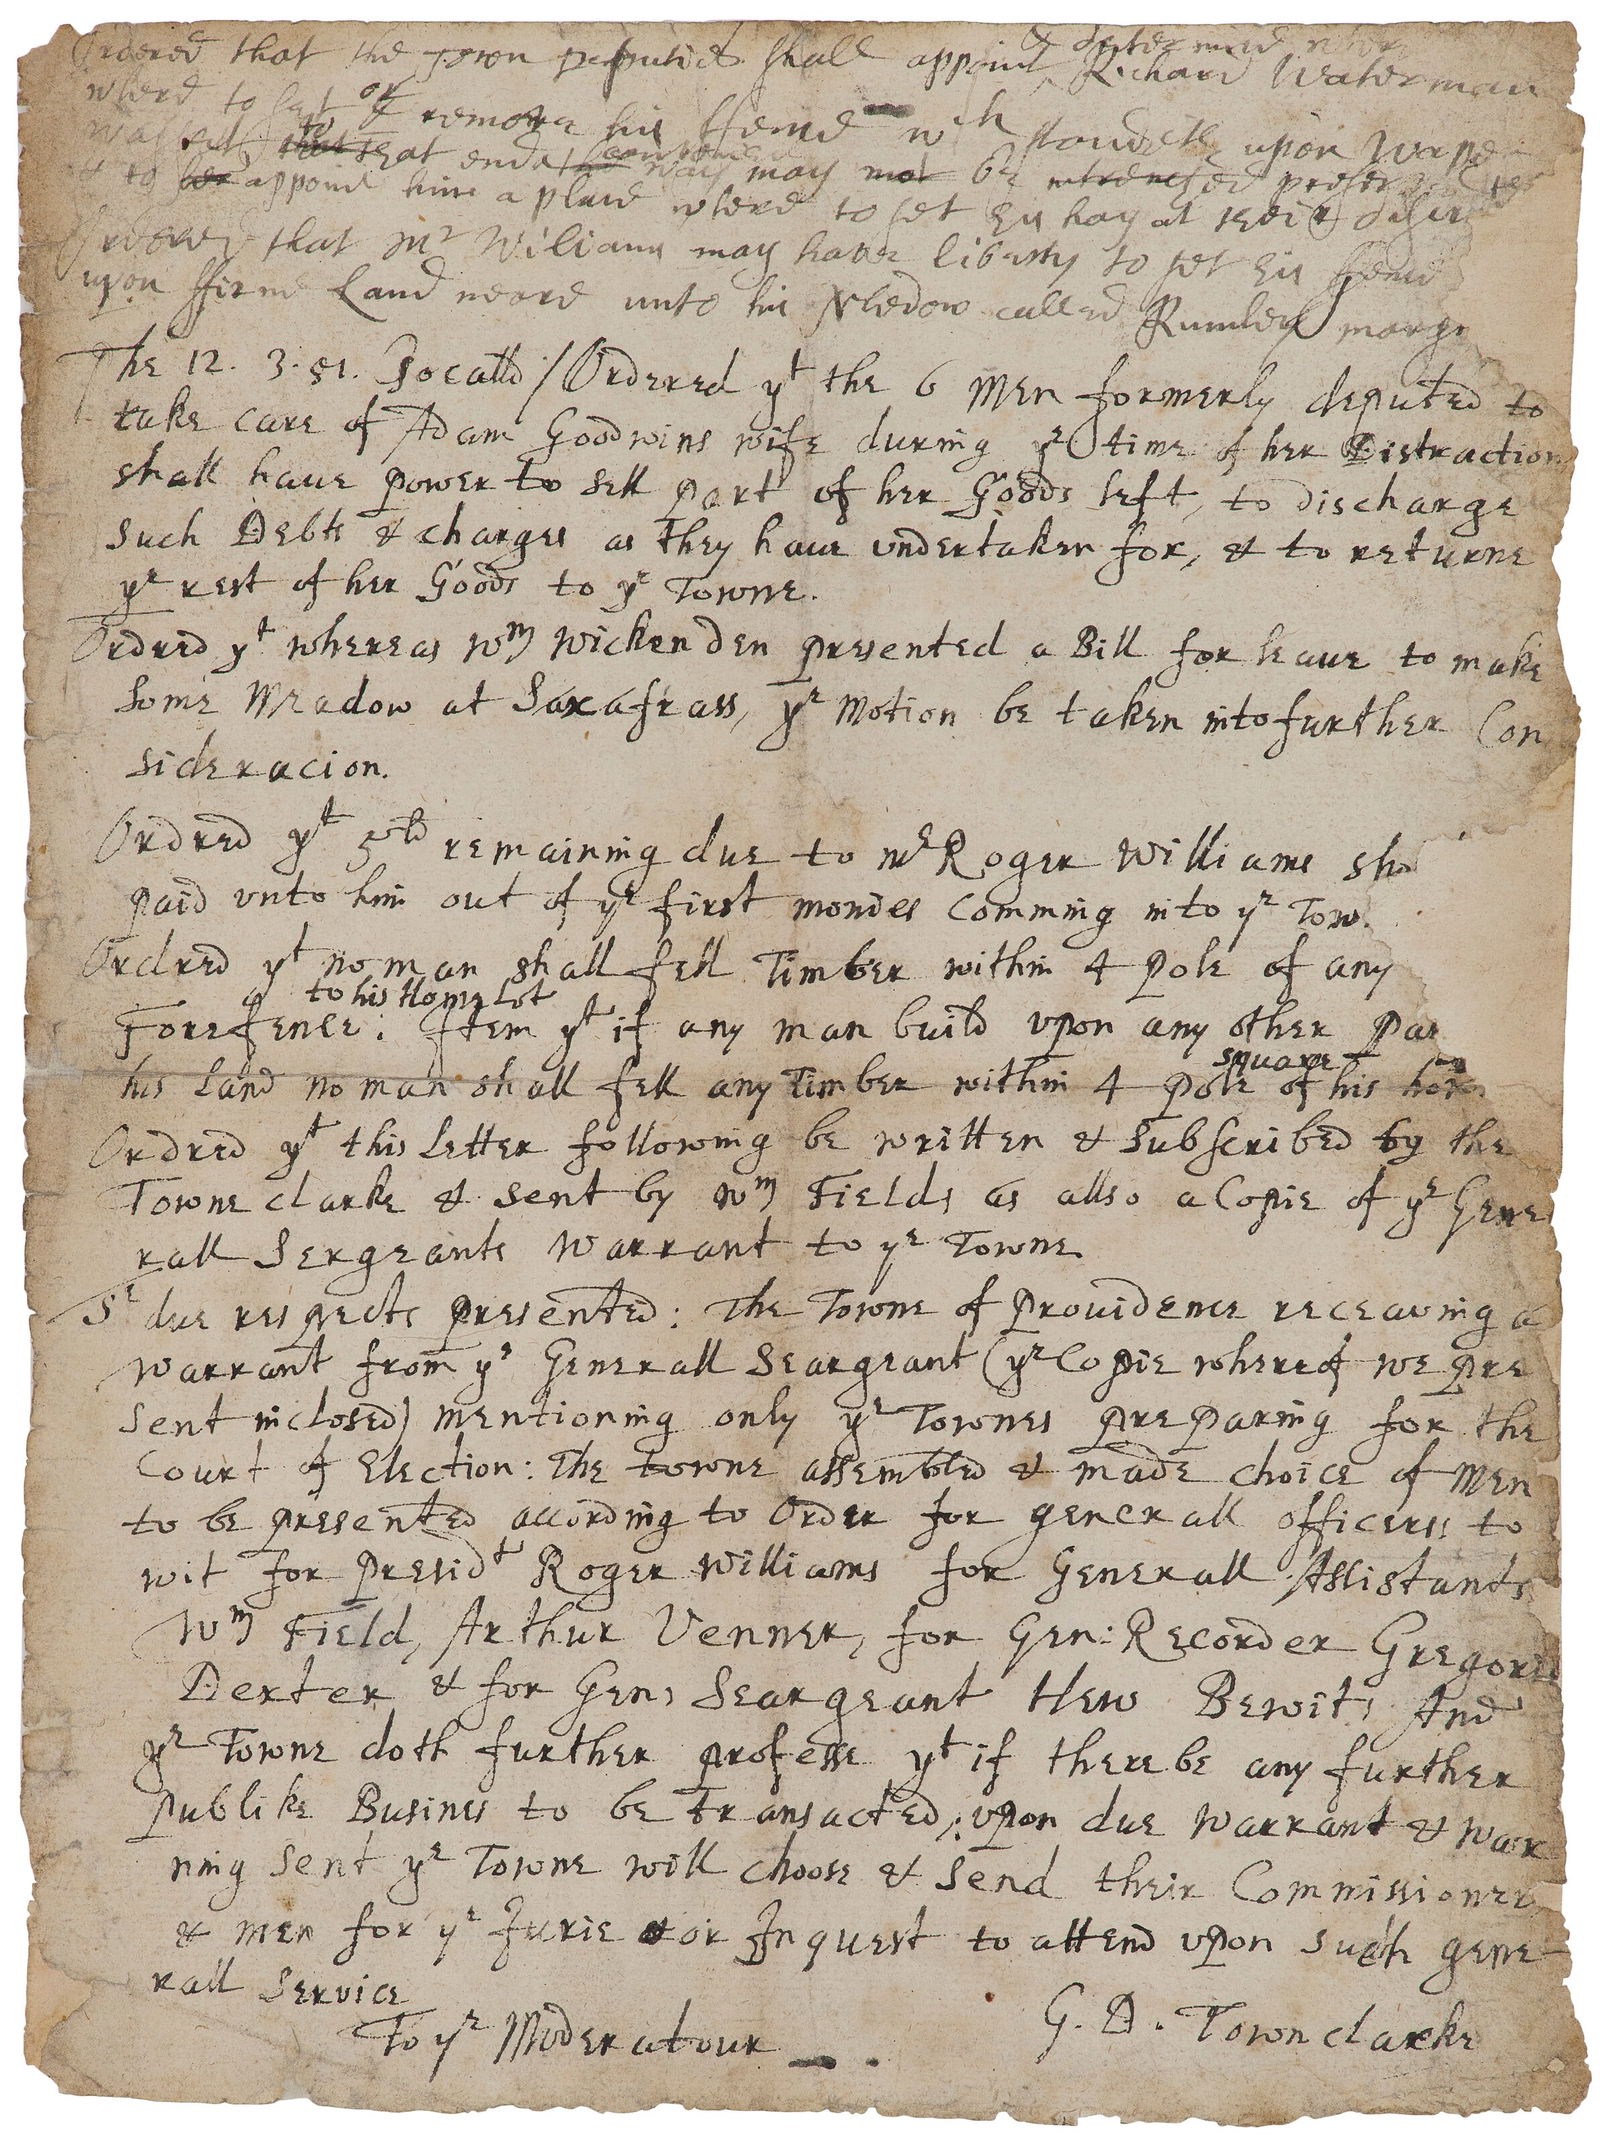 Ordered that the town deputies shall appoint & determine where Richard Waterman
where to set or remove his ffence wch standeth upon Wapo
that end a convenient way may be preserved
& to appoint him a place where to set his hay at their
Ordered that mr Williams may have liberty to set his ffence
upon ffirme Land neere unto his Medow called Rumley marsh
The 12. 3. 51. Socalld / Ordered yt the 6 Men formerly deputed to
take care of Adam Goodwins wife during ye time of her Distraction
shall haue power to sell part of her Goods left, to discharge
such Debts & charges as they haue vndertaken for, & to returne
ye rest of her Goods to ye Towne.
Ordred yt whereas Wm Wickenden presented a Bill for leaue to make
some Meadow at Saxafrass, ye Motion be taken into further Con
sideracion.
Ordred yt 5ld remaining due to mr Roger Williams sh
paid vnto him out of ye first monies comming into ye Tow
Ordred yt no man shall fell Timber within 4 Pole of any
to his Home Lot
Forefence: Item yt if any man build vpon any other Par
square
his Land no man shall fell any Timber within 4 Pole of his hom
Ordred yt this Letter following be written & Subscribed by the
Towne clarke & sent by Wm Fields as allso a Copie of ye Gene
rall Sergeants Warrant to ye Towne
Sr due respects presented: The Towne of Prouidence receauing a
warrant from ye Generall Seargeant (ye Copie whereof we pre
sent inclosed) mentioning only ye Townes prePareing for the
Court of Election: The towne assembled & made choice of Men
to be presented according to Order for generall officerss to
wit for Presidt Roger Williams for Generall Assistants
Wm Field, Arthur Venner, for Gen: Recorder Gregorie
Dexter & for Gen: Seargeant Hew Bewit: And
ye Towne doth further professe yt if there be any further
Publike Busines to be transacted, vpon due Warrant & War
ning sent ye Towne will choose & send their Commissioners
& men for ye Jurie & or Inquest to attend vpon such gene
rall service
To ye Moderatour
G. D. Town clarke